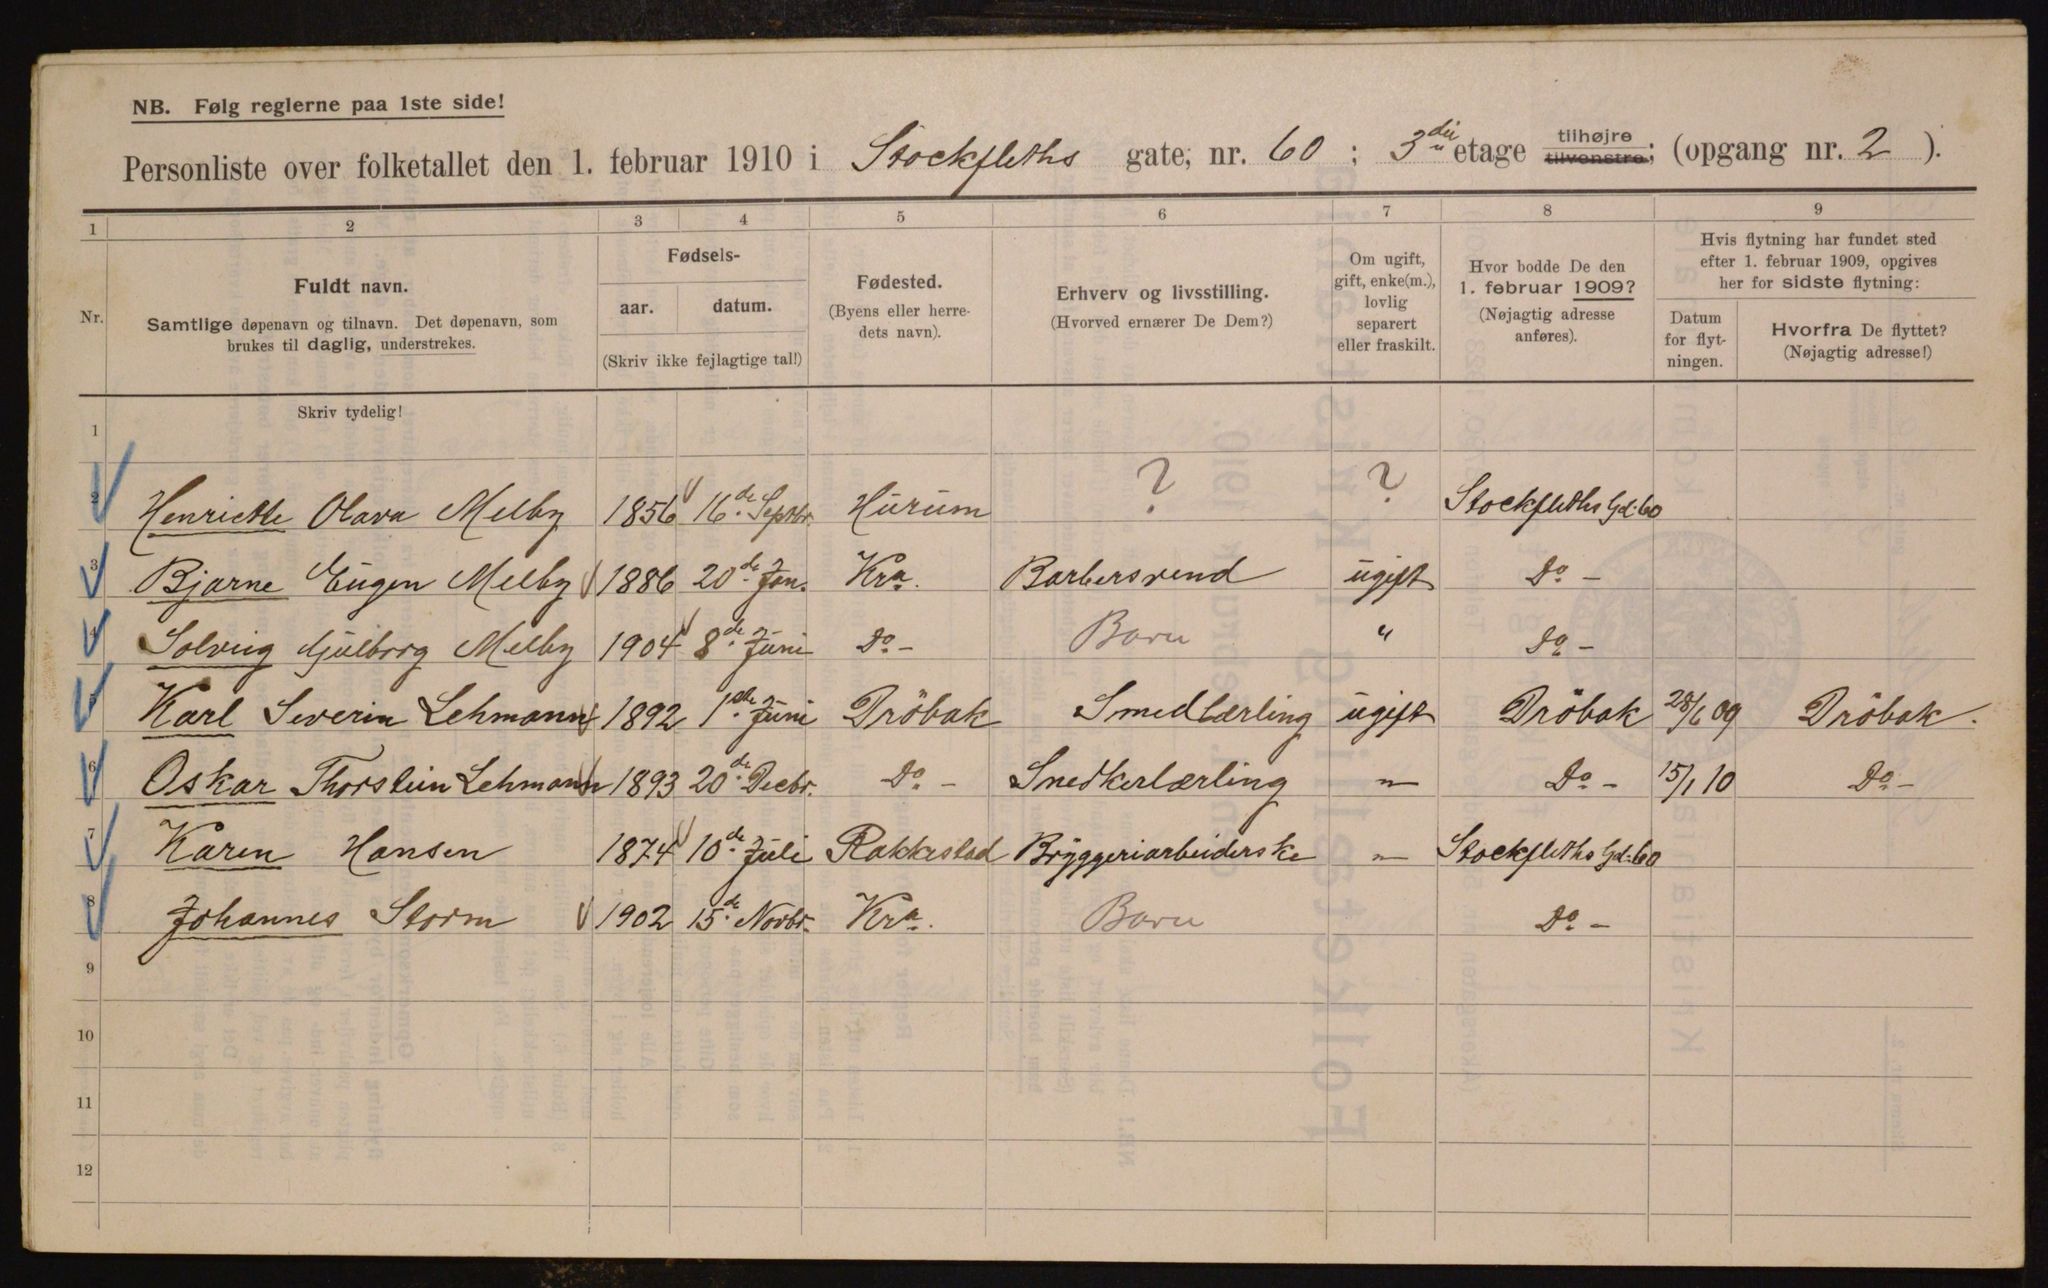 NB. Følg reglerne paa 1ste side!
Personliste over folketallet den 1. februar 1910 i Stockfleths gate; nr. 60 ; 3die etage tilhøjre tilvenstre; (opgang nr. 2 ).
1 2 3 4 5 6 7 8 9
Nr.
Fuldt navn.
Samtlige døpenavn og tilnavn. Det døpenavn, som
brukes til daglig, understrekes.
Fødsels-
aar. datum.
(Skriv ikke fejlagtige tal!)
Fødested.
(Byens eller herre-
dets navn).
Erhverv og livsstilling.
(Hvorved ernærer De Dem?)
Om ugift,
gift, enke(m.),
lovlig
separert
eller fraskilt.
Hvor bodde De den
1. februar 1909?
(Nøjagtig adresse
anføres).
Hvis flytning har fundet sted
efter 1. februar 1909, opgives
her for sidste flytning:
Datum
for flyt-
ningen.
Hvorfra De flyttet?
(Nøjagtig adresse!)
Skriv tydelig!
1
2 Henriette Olava Melby 1856 16de Septbr. Hurum ? ? Stockfleths Gd. 60
3 Bjarne Eugen Melby 1886 20de Jan. Kra. Barbersvend ugift Do -
4 Solveig Gulborg Melby 1904 8de Juni Do - Barn " Do -
5 Karl Severin Lehmann 1892 1ste Juni Dröbak Smedlærling ugift Dröbak 28/6 09 Dröbak.
6 Oskar Thorstein Lehmann 1893 20de Decbr. Do - Snedkerlærling " Do - 15/1 10 Do -
7 Karen Hansen 1874 10de Juli Rakkestad Bryggeriarbeiderske " Stockfleths Gd. 60
8 Johannes Storm 1902 15de Novbr. Kra. Barn Do -
9
10
11
12